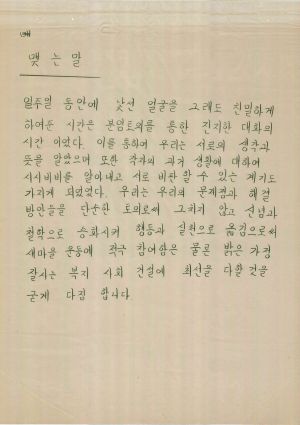 맺는말
일주일 동안에 낯선 얼굴을 그래도 친밀하게
하여준 시간은 분임토의를 통한 진지한 대화의
시간 이었다. 이를 통하여 우리는 서로의 생각과
뜻을 알았으며 또한 각자의 과거 생활에 대하여
시시비비를 알아내고 서로 비판 할 수 있는 계기도
가지게 되었었다. 우리는 우리의 문제점과 해결
방안들을 단순한 토의로써 그치지 않고 신념과
철학으로 승화시켜 행동과 실천으로 옮김으로써
새마을 운동에 적극 참여함은 물론 밝은 가정
잘사는 복지 사회 건설에 최선을 다할 것을
굳게 다짐 합니다